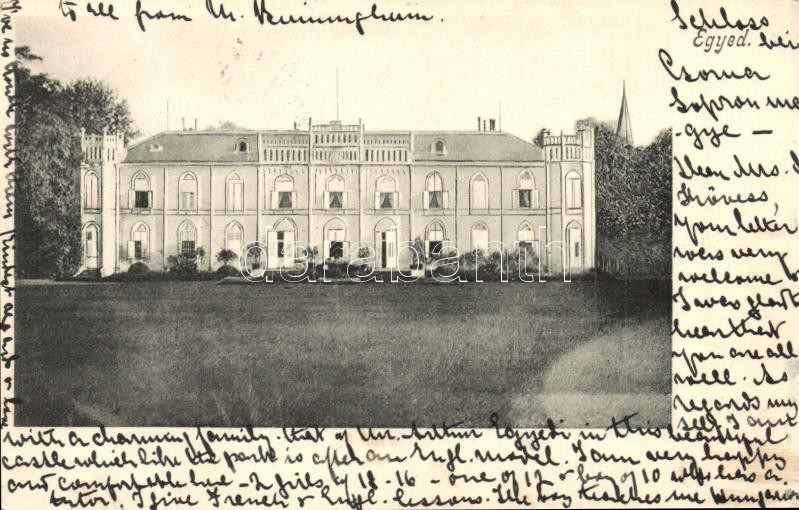 Egyed.
Schloss
bei
Csorna
Sopron me
-gye -
Dear Mrs.
your letter
was very
welcome &
I was glad to
hear that
you are all
well. As
regards my
self I am
with a charming family, that of Mr. Arthur Egyedi in this beautiful
castle which like the park is after an Engl. model. I am very happy
and comfortable here - 2 girls of 18 - 16 - one of 12 & boy of 10 who has a
tutor. I give French & Engl. lessons. The boy teaches me Hungarian
to all from M. Kuningham.
darabanth